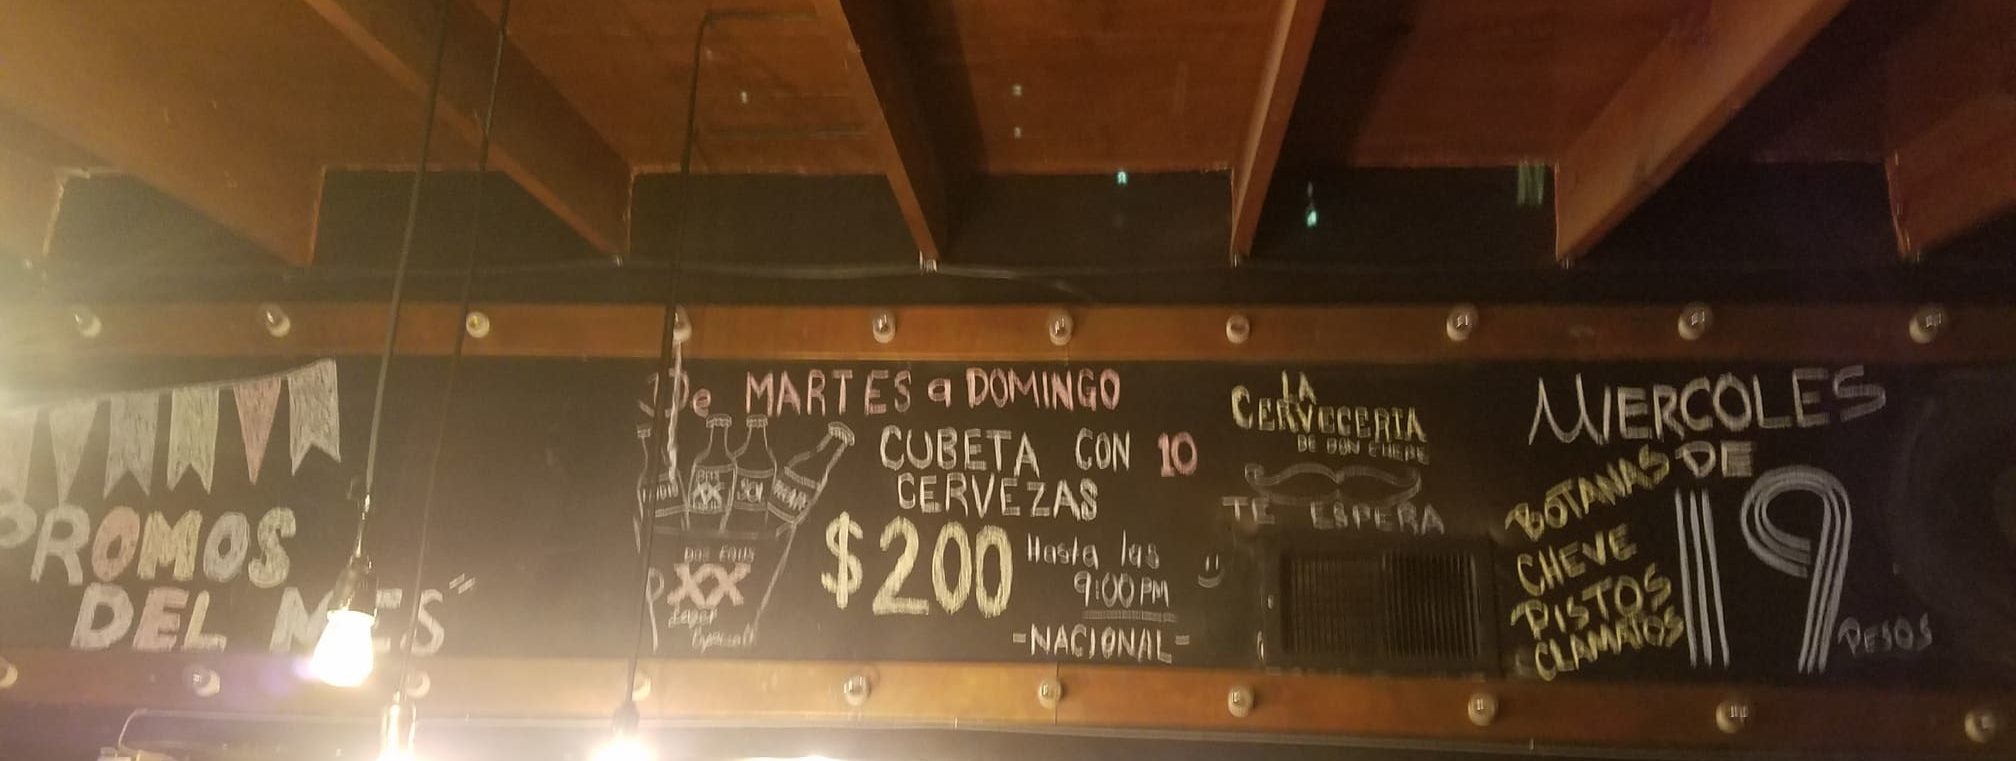 PROMOS
DEL MES"
De MARTES a DOMINGO
CUBETA CON 10
CERVEZAS
$200 Hasta las
9:00 PM
-NACIONAL-
XX
SOL
DOS EQUIS
XX
Lager
Especial
LA
CERVECERIA
DE DON CHEPE
TE ESPERA
MIERCOLES
DE
19
PESOS
BOTANAS
CHEVE
PISTOS
CLAMATOS